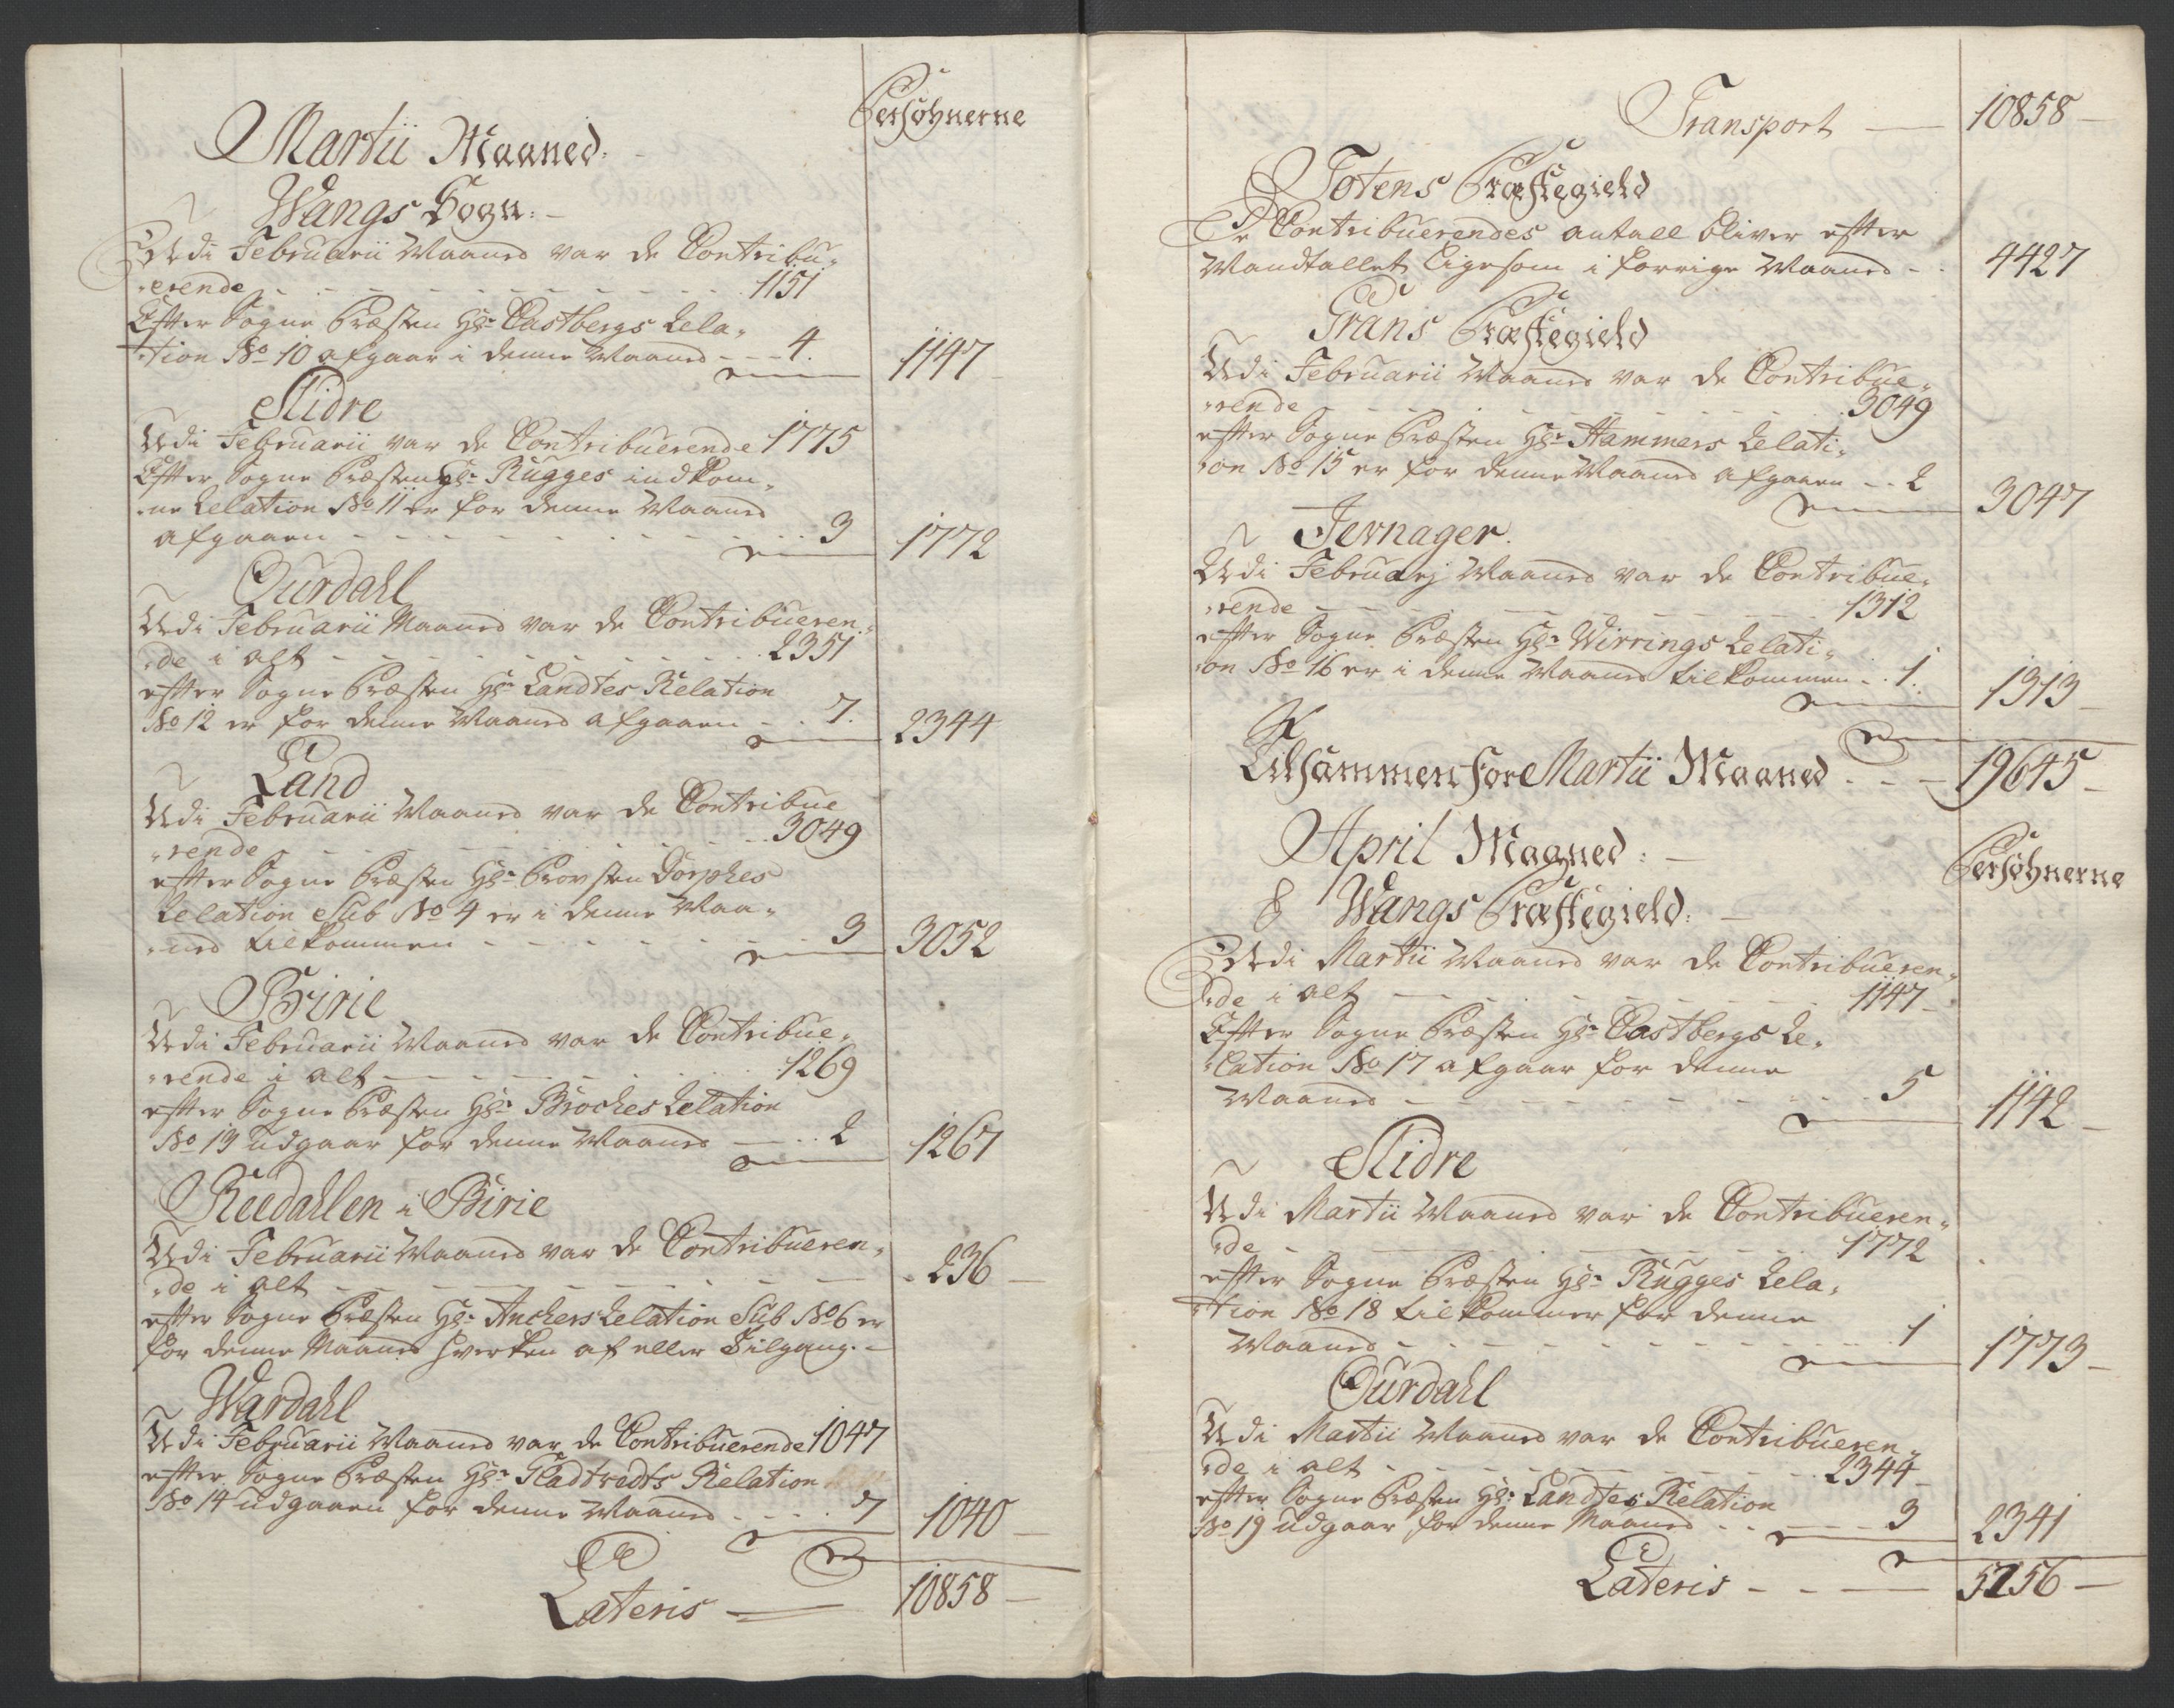 Persohnerne
Martii Maaned.
Wangs Sogn:
Udi Februarii Maaned var de Contribu-
erende 1151
Efter Sogne Præsten Hr. Castbergs Rela-
tion No 10 afgaar i denne Maaned 4. 1147
Slidre
Udi Februarii var de Contribuerende 1775
Efter Sogne Præsten Hr. Rugges indkom-
ne Relation No 11 er for denne Maaned
afgaaen 3 1772
Ourdahl
Udi Februarii Maaned var de Contribueren-
de i alt 2351
efter Sogne Præsten Hr. Landtes Relation
No 12 er for denne Maaned afgaaen 7. 2344
Land
Udi Februarii Maaned var de Contribue
rende 3049
efter Sogne Præsten Hr. Provsten Dorphes
Relation Sub No 4 er i denne Maa-
ned tilkommen 3 3052
Birie
Udi Februarii Maaned var de Contribue-
rende i alt 1269
efter Sogne Præsten Hr. Broches Relation
No 13 udgaar for denne Maaned 2 1267
Reedahlen i Birie
Udi Februarii Maaned var de Contribueren-
de i alt 236
efter Sogne Præsten Hr. Anchers Relation Sub No 6 er
for denne Maaned hverken af eller Tilgang.
Wardahl
Udi Februarii Maaned var de Contribuerende 1047
efter Sogne Præsten Hr. Gladtvedts Relation
No 14 udgaaen for denne Maaned 7 1040
Lateris 10858
Transport 10858
Totens Præstegield
De Contribuerendes antall bliver efter
Mandtallet ligesom i forrige Maaned 4427
Grans Præstegield
Udi Februarii Maaned var de Contribue-
rende 3049
efter Sogne Præsten Hr. Hammers Relati-
on No 15 er for denne Maaned afgaaen 2 3047
Jevnager.
Udi Februarj Maaned var de Contribue-
rende 1312
efter Sogne Præsten Hr. Wirrings Relati-
on No 16 er i denne Maaned tilkommen 1. 1313
Tilsammen for Martii Maaned 19645
April Maaned:
Persohnerne
Wangs Præstegield:
Udi Martii Maaned var de Contribueren-
de i alt 1147
Efter Sogne Præsten Hr. Castbergs Re-
lation No 17 afgaar for denne
Maaned 5 1142
Slidre
Udi Martii Maaned var de Contribueren-
de 1772
efter Sogne Præsten Hr. Rugges Rela-
tion No 18 tilkommer for denne
Maaned 1 1773
Ourdahl
Udi Martii Maaned var de Contribueren-
de i alt 2344
efter Sogne Præsten Hr. Landtes Relation
No 19 udgaar for denne Maaned 3 2341
Lateris 5256